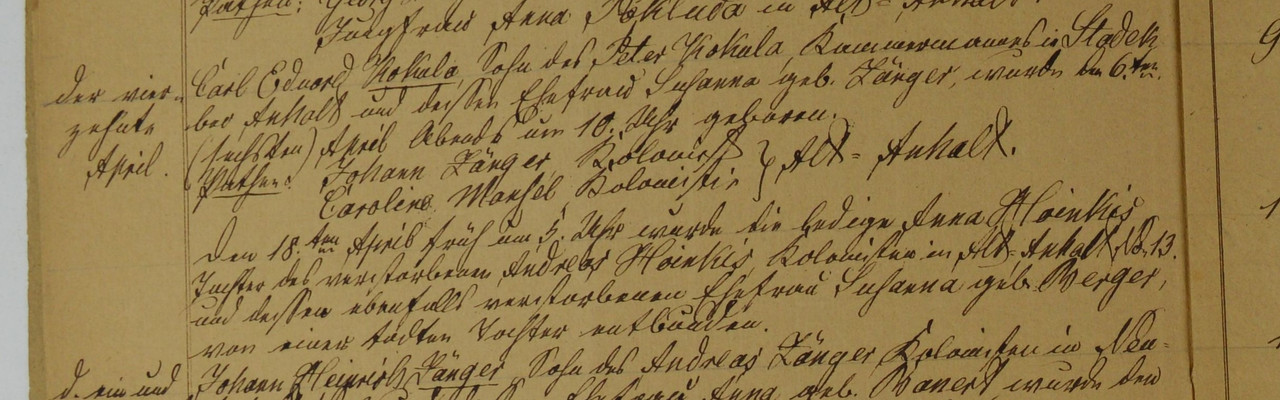 Pathen: Georg
Jungfrau Anna in Alt-Anhalt.
der vier-
zehnte
April.
Carl Eduard Kokula, Sohn des Peter Kokula, Kammermannes in
bei Anhalt und dessen Ehefrau Susanna geb. Jänger, wurde den 6.ten
(sechsten) April Abends um 10. Uhr geboren.
Pathen: Johann Jänger Kolonist } Alt-Anhalt.
Caroline Kolonistin
Den 18.ten April früh um 5. Uhr wurde die ledige Anna Hoinkis
Tochter des verstorbenen Andreas Hoinkis Kolonisten in Alt-Anhalt No 13.
und dessen ebenfalls verstorbenen Ehefrau Susanna geb. Berger,
von einer todten Tochter entbunden.
d. ein und
Johann Heinrich Jänger, Sohn des Andreas Jänger Kolonisten in Neu-
Ehefrau Anna geb. wurde den